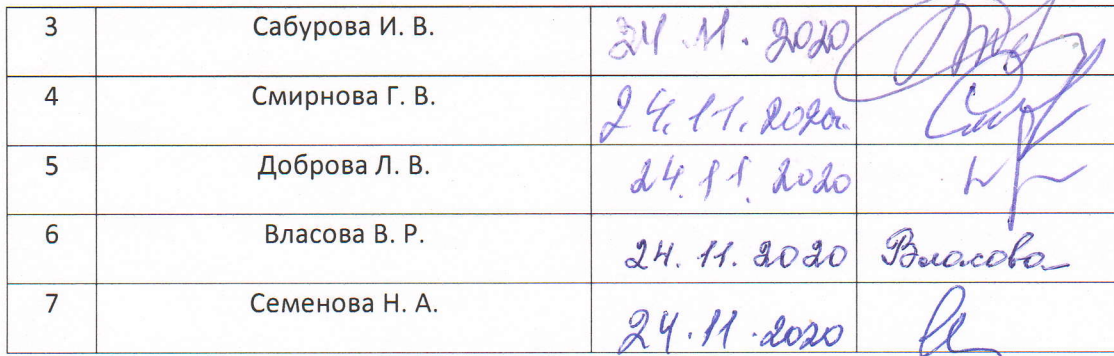 3 Сабурова И. В. 24.11.2020
4 Смирнова Г. В. 24.11.2020г.
5 Доброва Л. В. 24.11.2020
6 Власова В. Р. 24.11.2020 Власова
7 Семенова Н. А. 24.11.2020